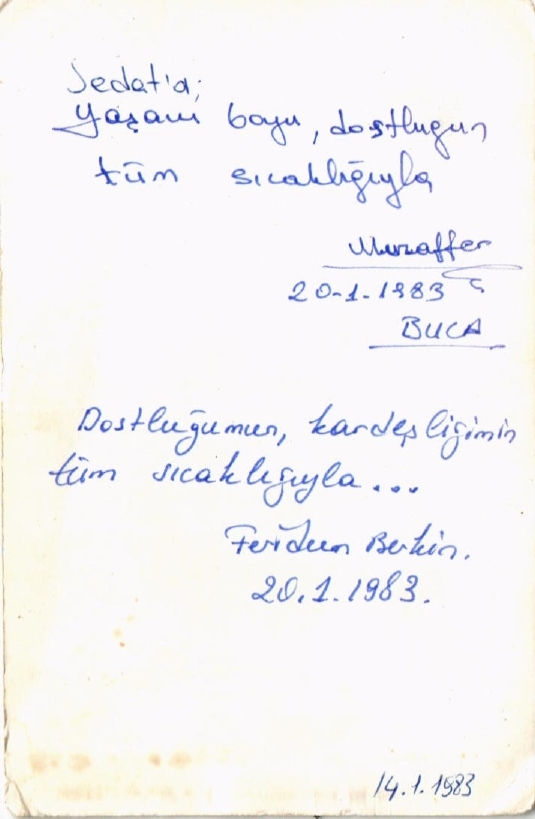 Sedat'a;
Yaşam boyu, dostluğun
tüm sıcaklığıyla
Muzaffer
20-1-1983
BUCA
Dostluğumun, kardeşliğimin
tüm sıcaklığıyla...
Feridun Berkin.
20.1.1983.
14.1.1983